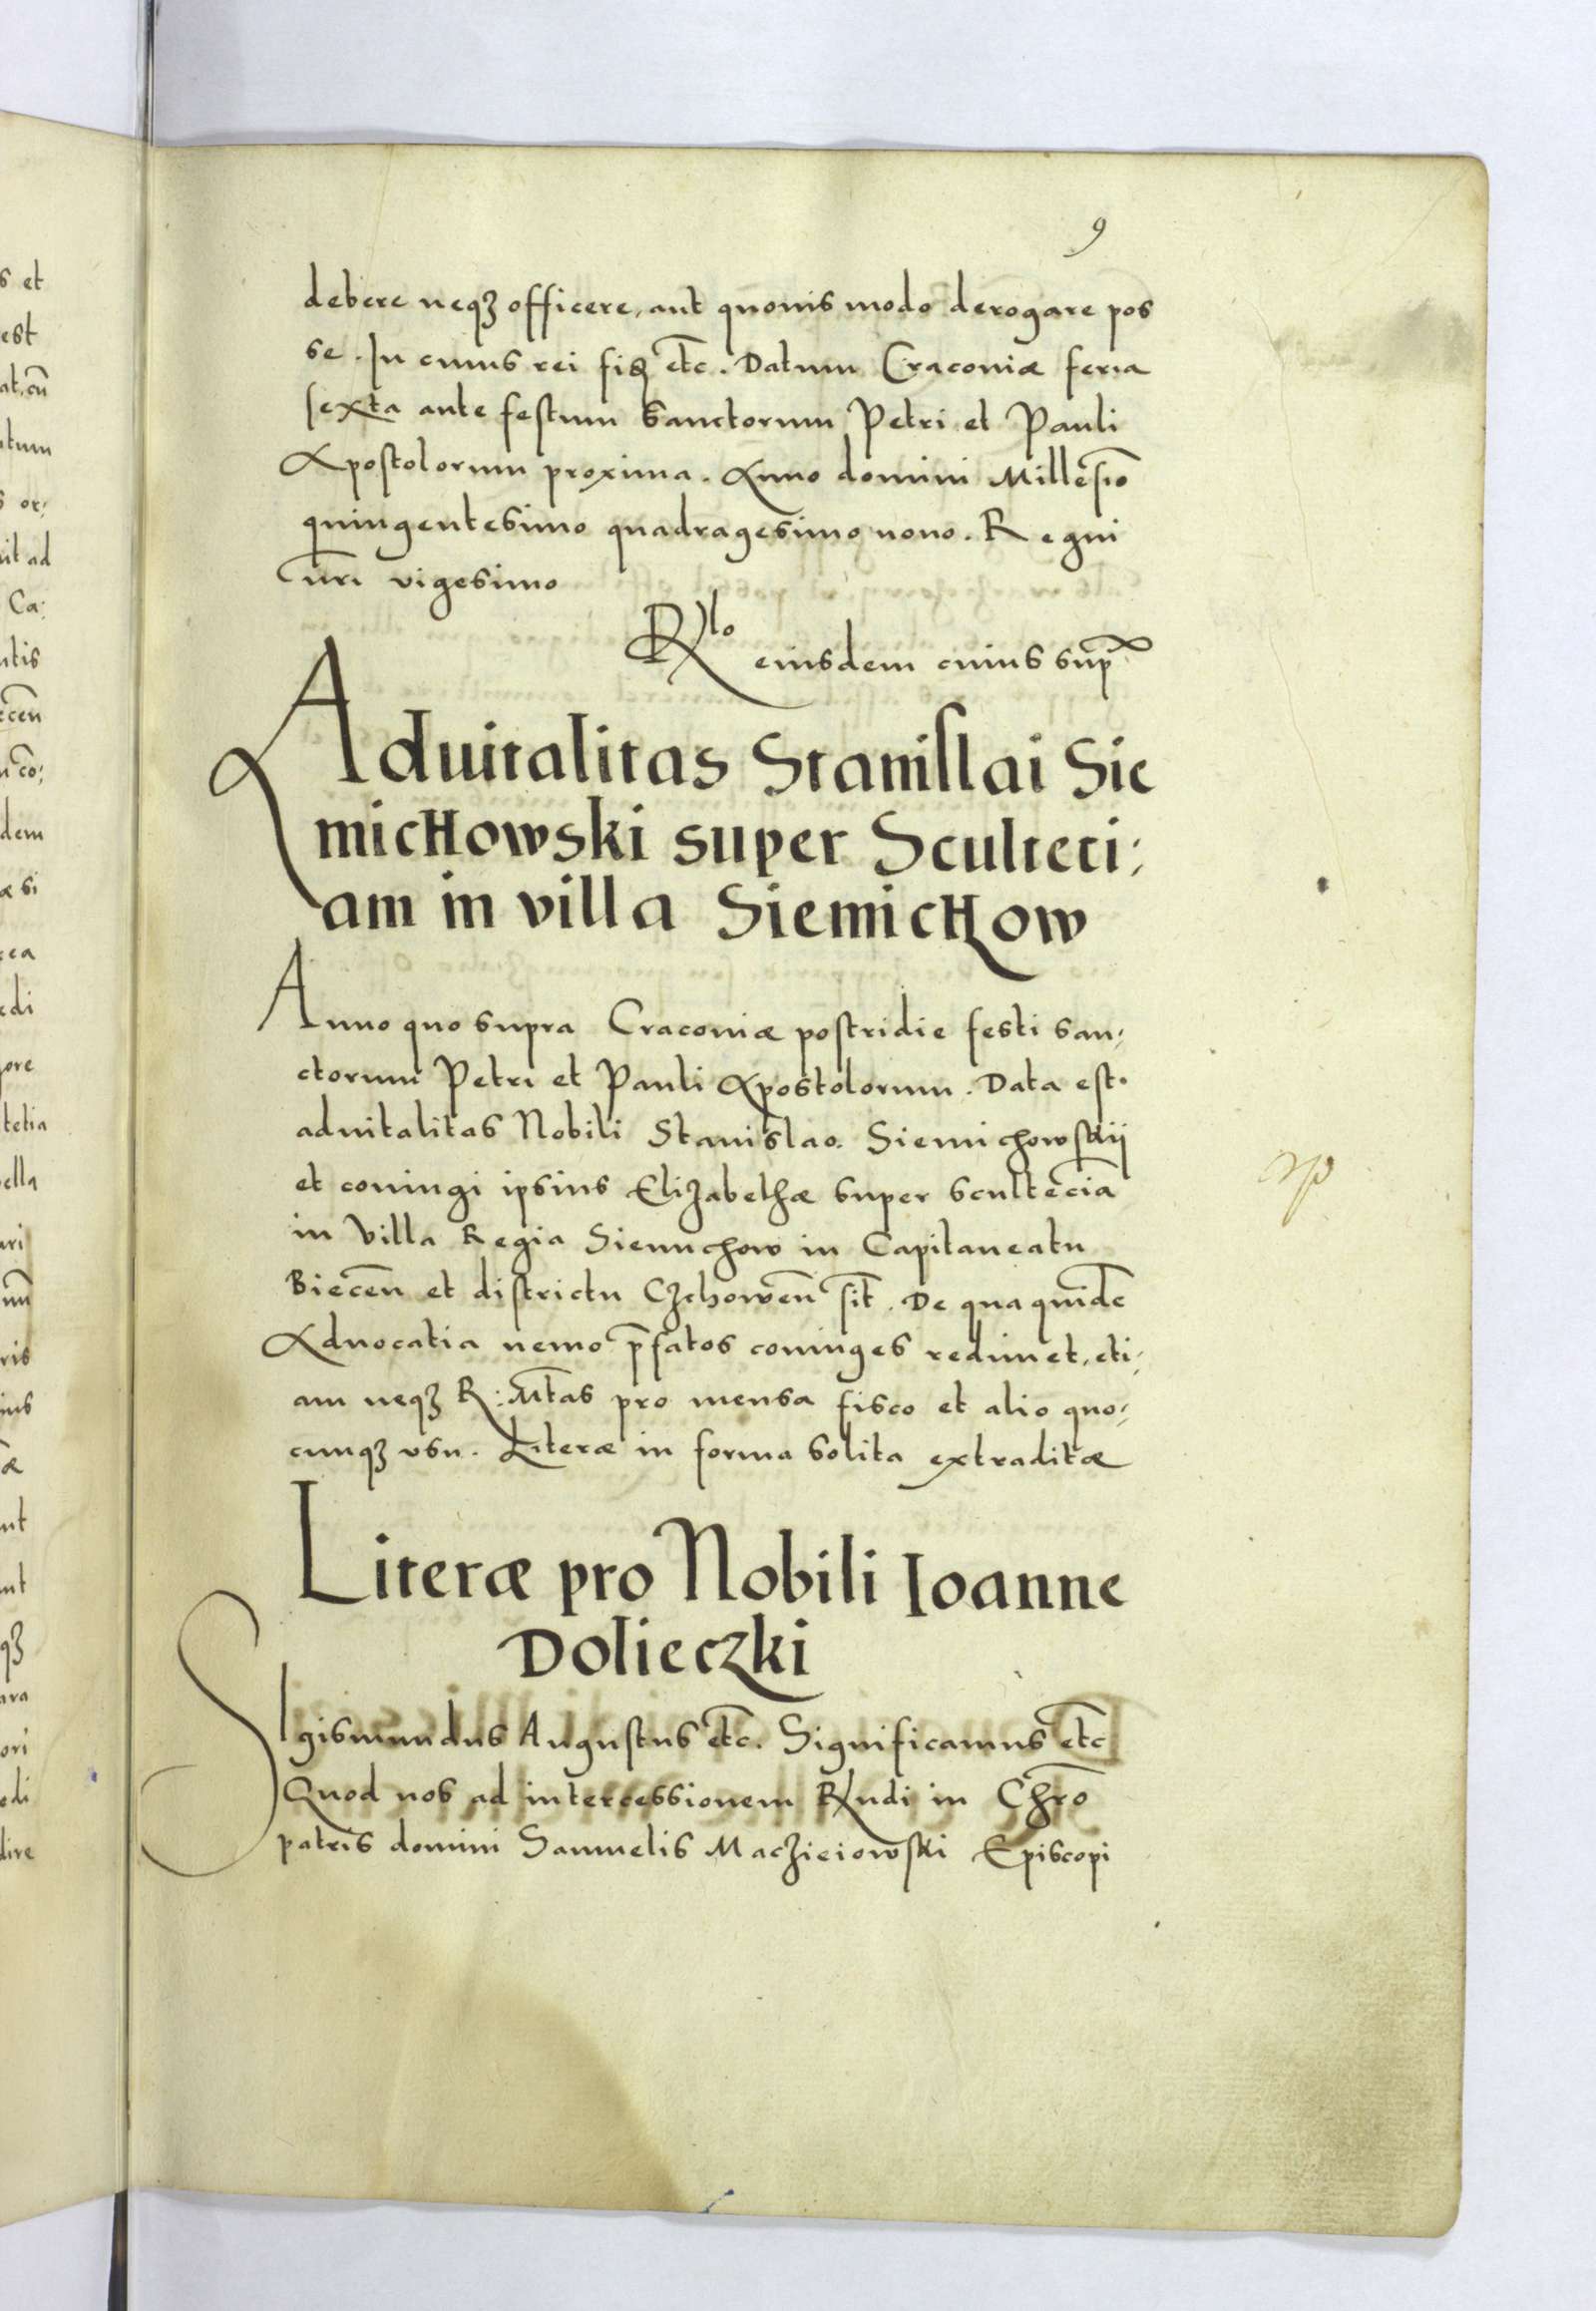 9
debere neqȝ officere, aut quouis modo derogare pos
se. In cuius rei fiȝ etc̄. Datum Cracouiæ feria
sexta ante festum Sanctorum Petri et Pauli
Apostolorum proxima. Anno domini Millesīo
quingentesimo quadragesimo nono. Regni
nr̄i vigesimo
Rlo eiusdem cuius supᷓ
Aduitalitas Stanislai Sie
micHowski super Sculteti;
am in villa SiemicHow
Anno quo supra Cracouiæ postridie festi san,
ctorum Petri et Pauli Apostolorum. Data est.
aduitalitas Nobili Stanislao. Siemichowskij
et coniugi ipsius Elizabethæ super scultec̄ia
in Villa Regia Siemichow in Capitaneatu
Biecen̄ et districtu Czchowen̄ sit̄. De qua quidē
Aduocatia nemo p̄fatos coniuges redimet, eti,
am neqȝ R: Mt̄as pro mensa fisco et alio quo,
cunqȝ vsu. Literæ in forma solita extraditæ
Literæ pro Nobili Ioanne
Dolieczki
SIgismundus Augustus etc̄. Significamus etc̄
Quod nos ad intercessionem Rndi in Chrō
patris domini Samuelis Maczieiowski Episcopi